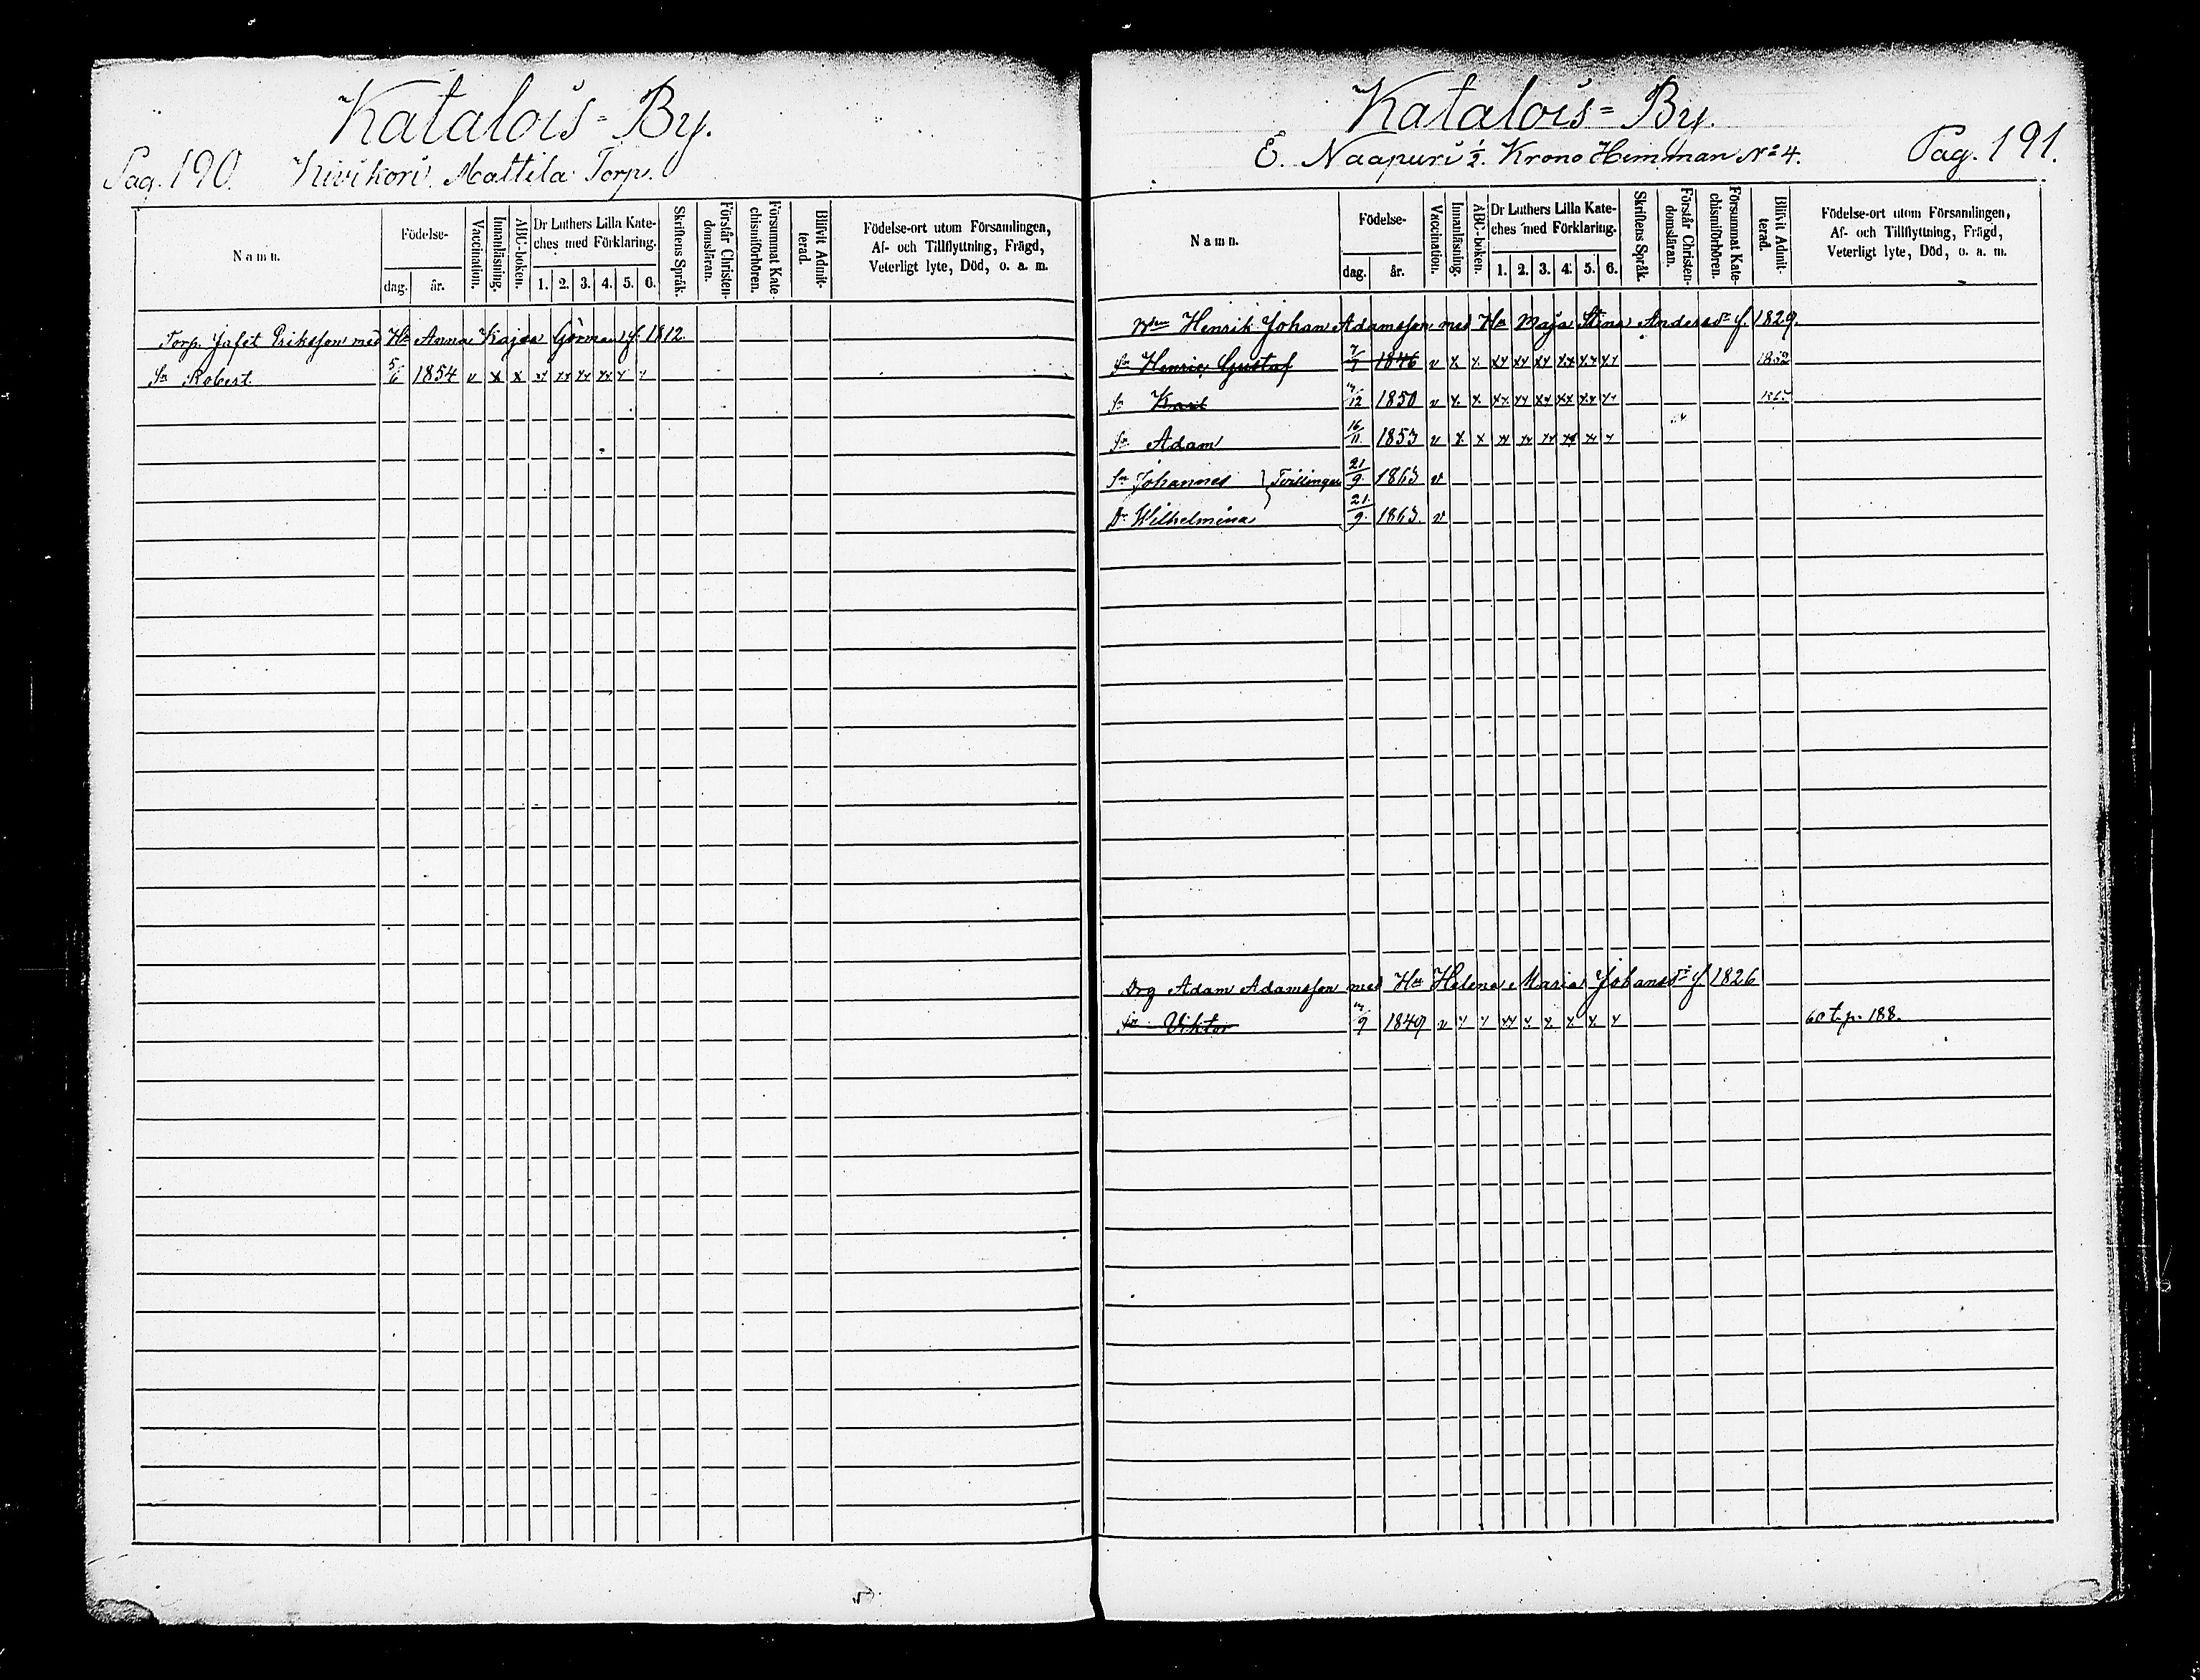 Katalois=By.
Pag. 190. Kivikori. Mattila Torp.
Namn.
Födelse-
dag. år.
Vaccination.
Innanläsning.
ABC-boken.
Dr Luthers Lilla Kate-
ches med Förklaring.
1. 2. 3. 4. 5. 6.
Skriftens Språk.
Förstår Christen-
domsläran.
Försummat Kate-
chismiförhören.
Blifvit Admit-
terad.
Födelse-ort utom Församlingen,
Af- och Tillflyttning, Frägd,
Veterligt lyte, Död, o. a. m.
Torp. Jafet Eriksson med Hu Anna Kajsa Görman f. 1812.
Sn Robert 5/6 1854 v x x
Katalois=By.
E. Naapuri ½. Krono Hemman No 4. Pag. 191.
Namn.
Födelse-
dag. år.
Vaccination.
Innanläsning.
ABC-boken.
Dr Luthers Lilla Kate-
ches med Förklaring.
1. 2. 3. 4. 5. 6.
Skriftens Språk.
Förstår Christen-
domsläran.
Försummat Kate-
chismiförhören.
Blifvit Admit-
terad.
Födelse-ort utom Församlingen,
Af- och Tillflyttning, Frägd,
Veterligt lyte, Död, o. a. m.
Henrik Johan Adamsson med Hu Maja Stina Andersdr f. 1829.
Sn Henric Gustaf 7/7 1846 v x x
Sn Karl 1850 v x x
Sn Adam 16/11 1853 v x x
Sn Johannes } Tvillingar 21/9 1863 v
Dr Wilhelmina 21/9 1863. v
Drg Adam Adamsson med Hu Helena Maria Johansdr f. 1826
Sn Viktor 1849 v p. 188.